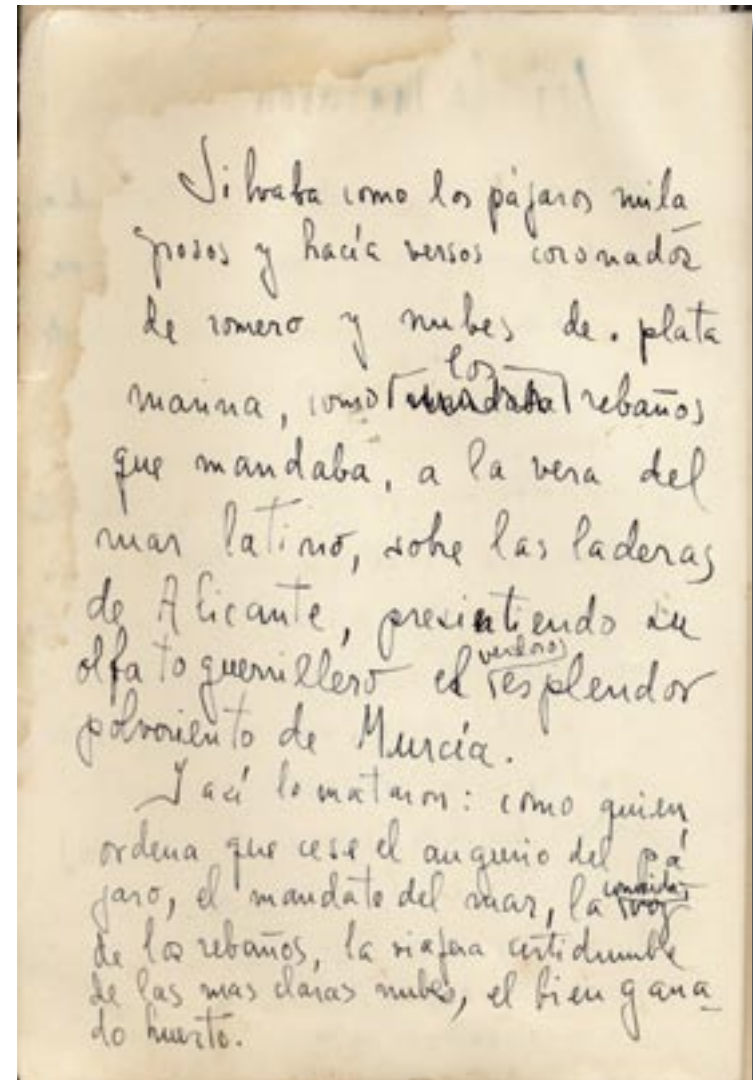 Silvaba como los pájaros mila
grosos y hacía versos coronados
de romero y nubes de plata
marina, como los rebaños
que mandaba, a la vera del
mar latino, sobre las laderas
de Alicante, presintiendo su
olfato guerrillero el verdoso resplendor
polvoriento de Murcia.
Y así lo mataron: como quien
ordena que cese el augurio del pá
jaro, el mandato del mar, la
de los rebaños, la viajera certidumbre
de las mas claras nubes, el bien gana_
do huerto.